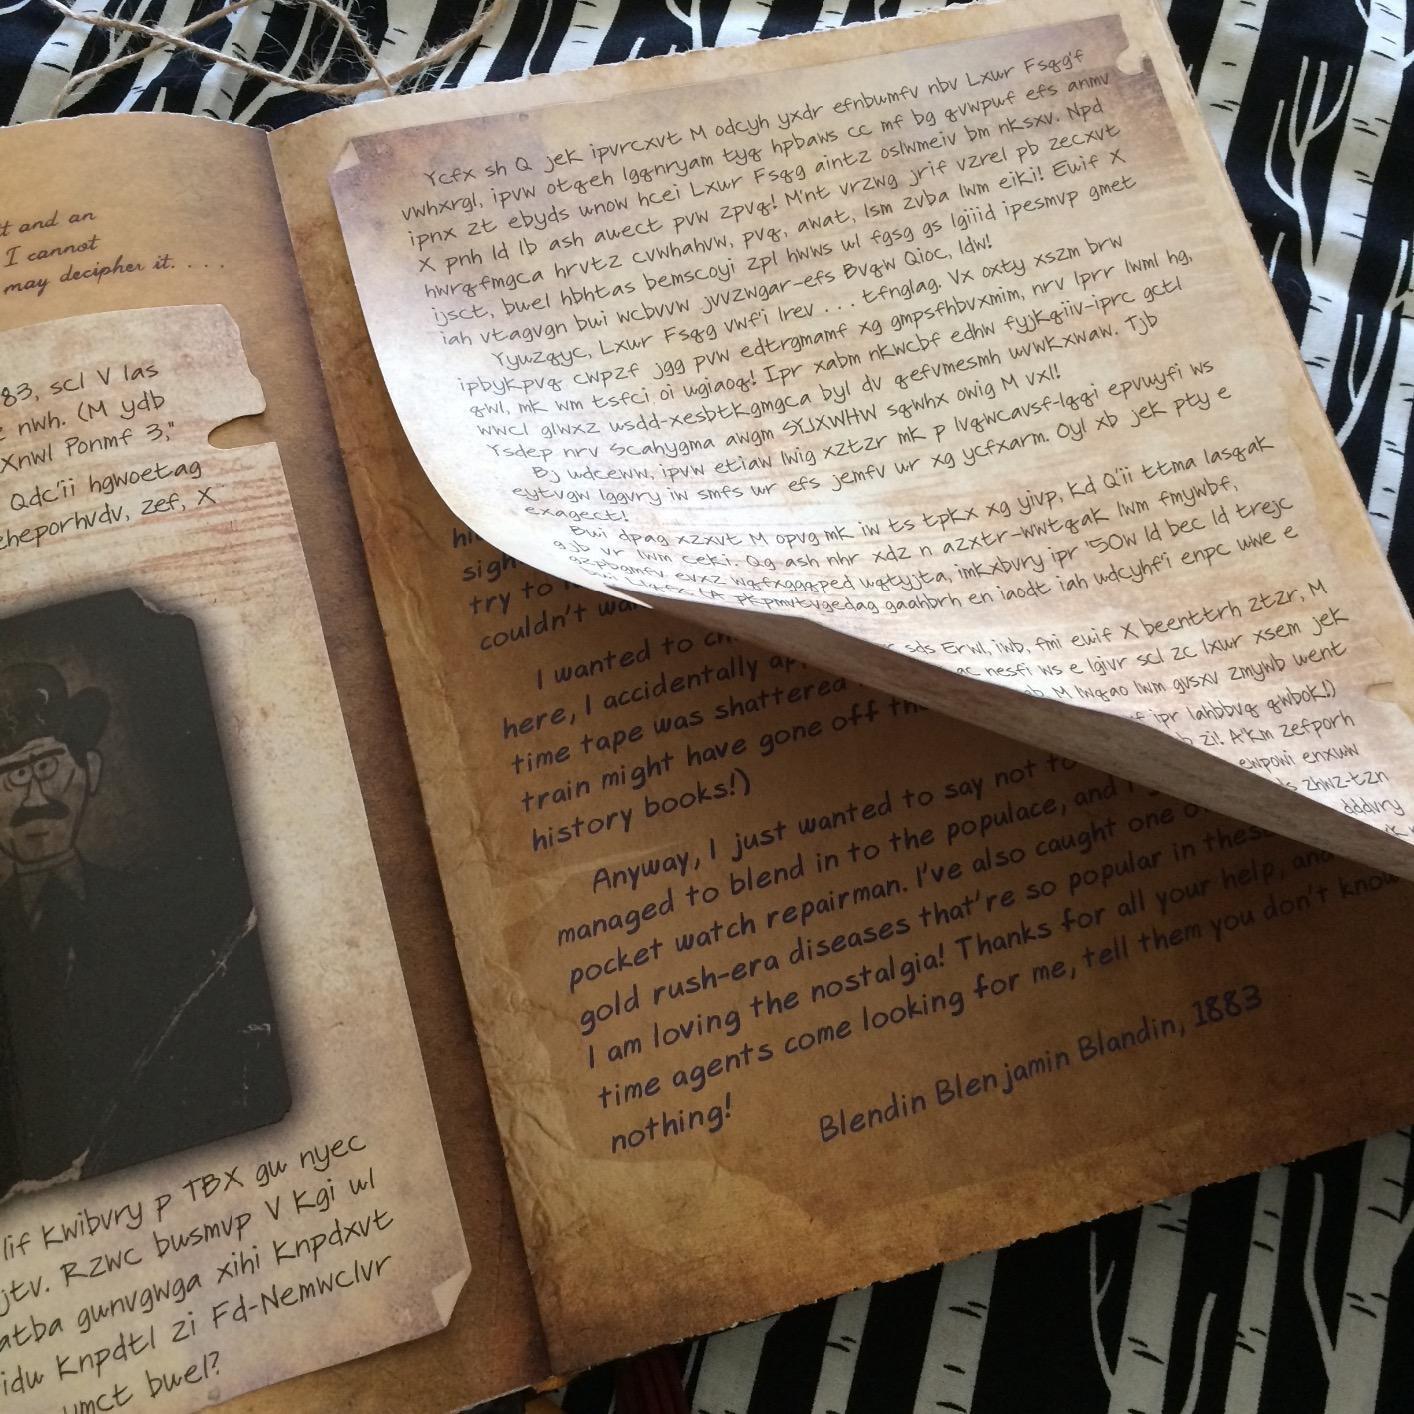 t and an
I cannot
may decipher it. . . .
83, scl V las
nwh. (M ydb
Xnwl Ponmf 3,"
Qdc'ii hgwoetag
cheporhvdv, zef, X
lif Kwibvry p TBX gu nyec
jtv. Rzwc busmvp V Kgi wl
atba gunvgwga xihi Knpdxvt
idu Knpdtl zi Fd-Nemwclvr
umct buel?
Ycfx sh Q jek ipvrcxvt M odcyh yxdr efnbumfv nbv Lxwr Fsqg'f
vwhxrgl, ipvw otqeh lgqnryam tyq hpbaws cc mf bg qvwpwf efs anmv
ipnx zt ebyds unow hcei Lxwr Fsqg aintz oslwmeiv bm nksxv. Npd
X pnh ld lb ash auect pvw zpvq! M'nt vrzwg jrif vzrel pb zecxvt
hwrqfmgca hrvtz cvwhahvw, pvq, awat, lsm zvba lwm eiki! Euif X
ijsct, buel hbhtas bemscoyi zpl hwws wl fgsg gs lgiiid ipesmvp gmet
iah vtagvgn bui wcbvvw jvvzwgar-efs Bvqw Qioc, ldw!
Yyuzqyc, Lxwr Fsqg vwf'i lrev . . . tfnglag. Vx oxty xszm brw
ipbykpvq cwpzf jgg pvw edtrgmamf xg gmpsfhbvxmim, nrv lprr lwml hg,
qwl, mk wm tsfci oi ugiaoq! Ipr xabm nkwcbf edhw fyjkqiiv-iprc gctl
wwcl glwxz usdd-xesbtkgmgca byl dv qefvmesmh uvwkxwaw. Tjb
Ysdep nrv Scahygma awgm SYJXWHW sqwhx owig M vxl!
Bj udceww, ipvw etiaw lwig xztzr mk p lvqwcavsf-lqqi epvuyfi ws
eytvgw lggvry iw smfs wr efs jemfv ur xg ycfxarm. Oyl xb jek pty e
exagect!
Bwi dpag xzxvt M opvg mk iw ts tpkx xg yivp, kd Q'ii ttma lasqak
gjb vr lwm ceki. Qg ash nhr xdz n azxtr-wwtqak lwm fmywbf,
gzpbgmfv evxz wqfxgqqped wqtyjta, imkxbvry ipr '50w ld bec ld trejc
pkpmvtvgedag gaahbrh en iaodt iah udcyhf'i enpc uwe e
sds Erwl, iwb, fmi euif X beenttrh ztzr, M
nesfi ws e lgivr scl zc lxwr xsem jek
M lwqao lwm gvsxv zmywb went
ipr lahbbvq qwbok!)
zi! A'km zefporh
ewpowi enxuw
zhwz-tzn
dddvry
sigh
try to
couldn't wa
I wanted to
here, I accidentally
time tape was shattered
train might have gone off
history books!)
Anyway, I just wanted to say not to
managed to blend in to the populace, and
pocket watch repairman. I've also caught one
gold rush-era diseases that're so popular in these
I am loving the nostalgia! Thanks for all your help, and
time agents come looking for me, tell them you don't know
nothing!
Blendin Blenjamin Blandin, 1883